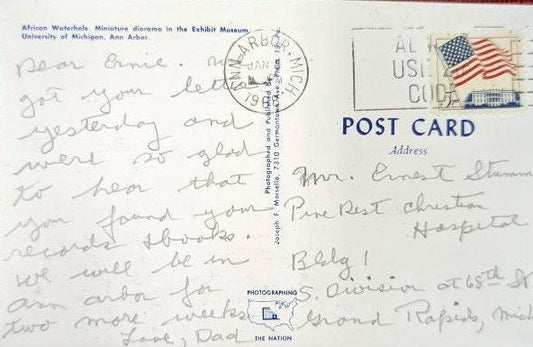 African Waterhole. Miniature diorama in the Exhibit Museum,
University of Michigan, Ann Arbor.
Dear Ernie. We
got your letter
yesterday and
were so glad
to hear that
you found your
records & books.
We will be in
ann arbor for
two more weeks
Love, Dad
Photographed and Published By
Joseph F. Morsello, 7310 Germantown Ave., Phila. 19
PHOTOGRAPHING
THE NATION
ANN ARBOR, MICH.
JAN
196
USE
CODE
POST CARD
Address
Mr. Ernest
Pine Rest Christian
Hospital
Bldg 1
S. Division at 68th St
Grand Rapids, Mich